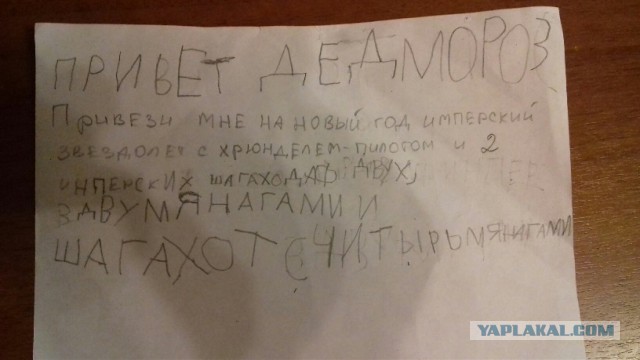 ПРИВЕТ ДЕДМОРОЗ
ПРИВЕЗИ МНЕ НА НОВЫЙ ГОД ИМПЕРСКИЙ
ЗВЕЗДОЛЕТ С ХРЮНДЕЛЕМ-ПИЛОТОМ И 2
ИНПЕРСКИХ ШАГАХОДА ДВУХ,
ЗДВУМЯНАГАМИ И
ШАГАХОТ СЧИТЫРЬМЯНАГАМИ
YAPLAKAL.COM